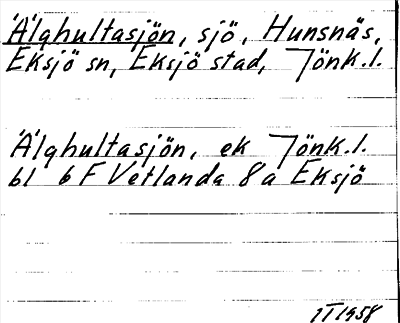 Älghultasjön, sjö, Hunsnäs,
Eksjö sn, Eksjö stad, Jönk.l.
Älghultasjön, ek Jönk.l.
bl 6 F Vetlanda 8a Eksjö
1958